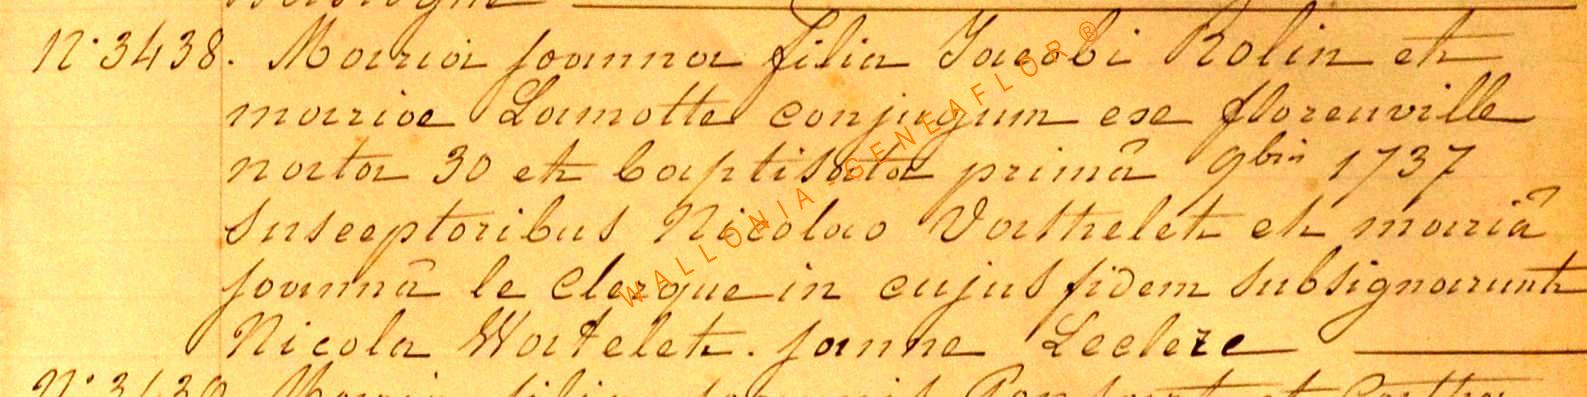 N° 3438. Maria joanna filia Jacobi Rolin et
mariae Lamotte conjugum ex florenville
nata 30 et baptisata primâ 9bris 1737
susceptoribus Nicolao Vathelet et mariâ
joannâ le Clerque in cujus fidem subsignarunt
Nicola Watelet. janne Leclerc
WALLONIA-GENEAFLOR®